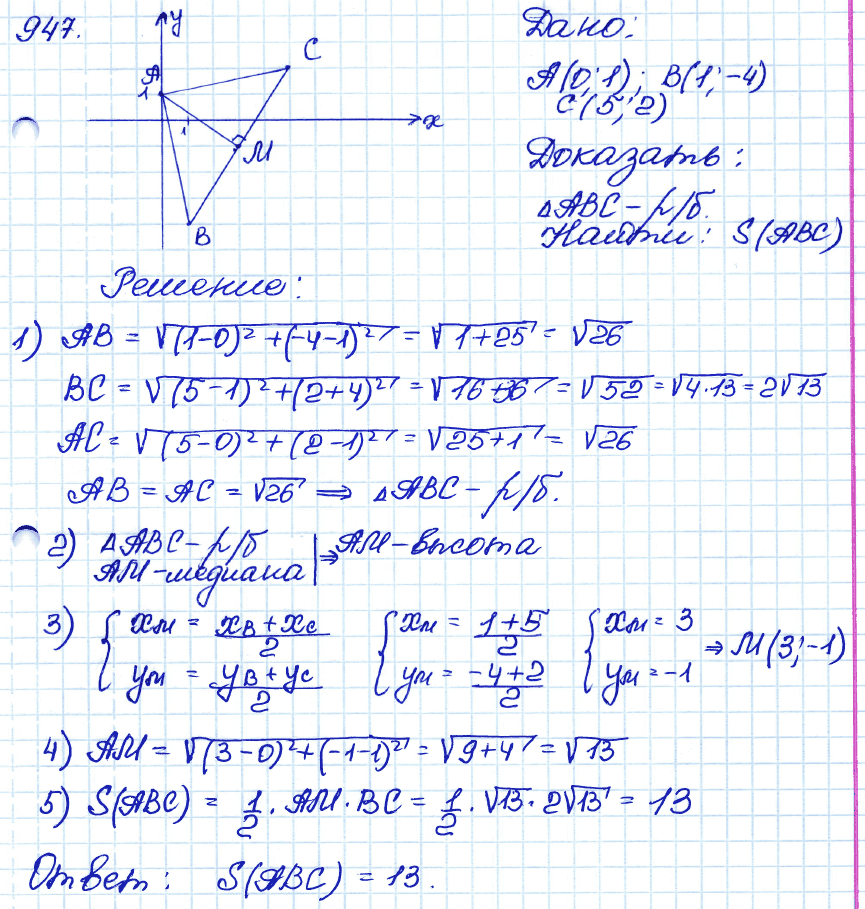 947.
y
C
A
1
1
x
M
B
Дано:
A(0;1); B(1;-4)
C(5;2)
Доказать:
△ABC – р/б.
Найти: S(ABC)
Решение:
1) AB = √((1-0)² + (-4-1)²) = √(1+25) = √26
BC = √((5-1)² + (2+4)²) = √(16+36) = √52 = √(4·13) = 2√13
AC = √((5-0)² + (2-1)²) = √(25+1) = √26
AB = AC = √26 ⇒ △ABC – р/б.
2) △ABC – р/б | ⇒ AM – высота
AM – медиана
3) { xм = (xв + xс)/2 { xм = (1+5)/2 { xм = 3
yм = (yв + yс)/2 yм = (-4+2)/2 yм = -1 ⇒ M(3;-1)
4) AM = √((3-0)² + (-1-1)²) = √(9+4) = √13
5) S(ABC) = 1/2 · AM · BC = 1/2 · √13 · 2√13 = 13
Ответ: S(ABC) = 13.